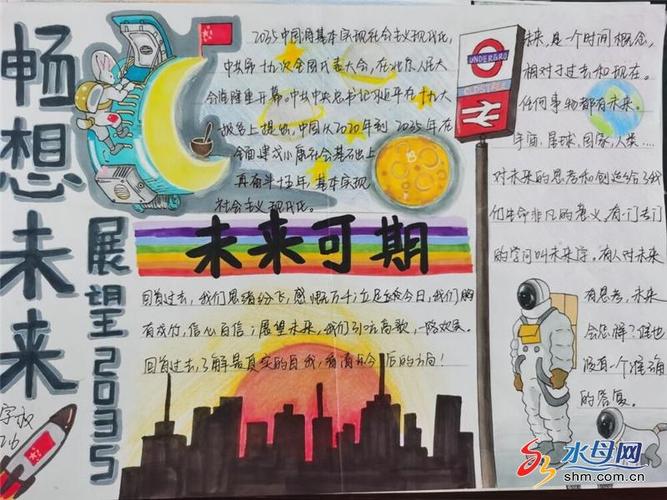 畅想未来
展望2035
2035中国将基本实现社会主义现代化,
中共第十九次全国代表大会,在北京人民大
会堂隆重开幕。中共中央总书记习近平在十九大
报告上提出,中国从2020年到2035年在
全面建成小康社会基础上
再奋斗十五年,基本实现
社会主义现代化。
UNDERGRO
未来可期
回首过去,我们思绪纷飞,感慨万千;立足于今日,我们胸
有成竹,信心百倍;展望未来,我们引吭高歌,一路欢笑。
回首过去,了解是真实的自我,看清今后的方向!
未来,是一个时间概念,
相对于过去和现在。
任何事物都有未来。
宇宙、星球、国家,人类……
对未来的思考和创造给了我
们生命非凡的意义,有一门专门
的学问叫未来学。有人对未来
有思考,未来
会怎样?谁也
没有一个准确
的答复。
水母网
shm.com.cn